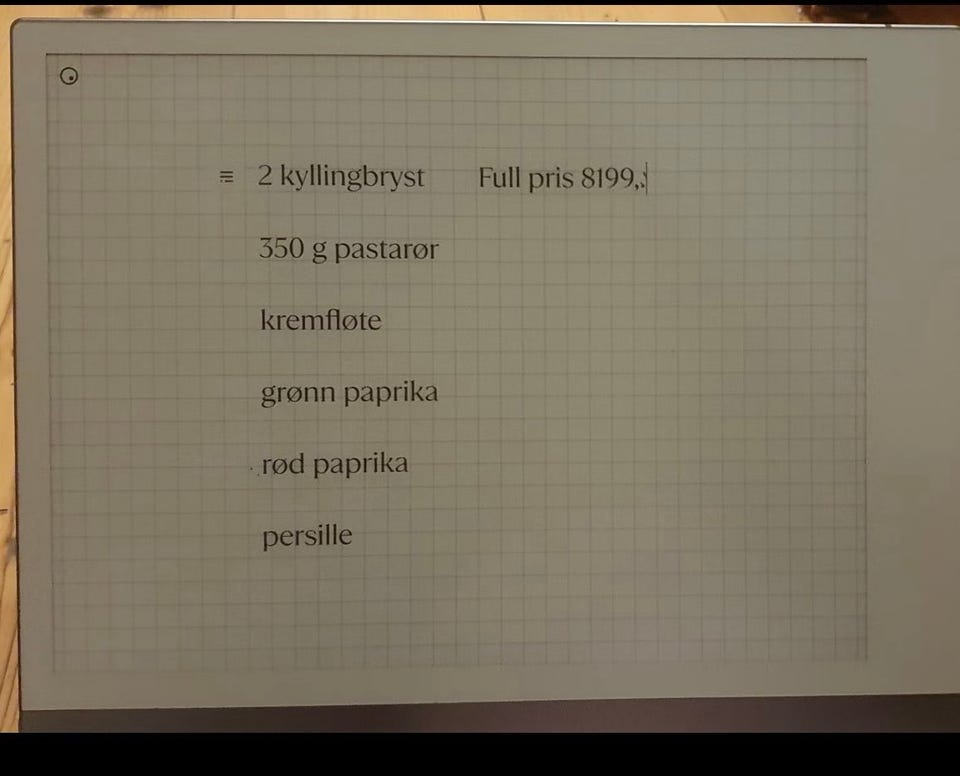 2 kyllingbryst Full pris 8199,
350 g pastarør
kremfløte
grønn paprika
rød paprika
persille